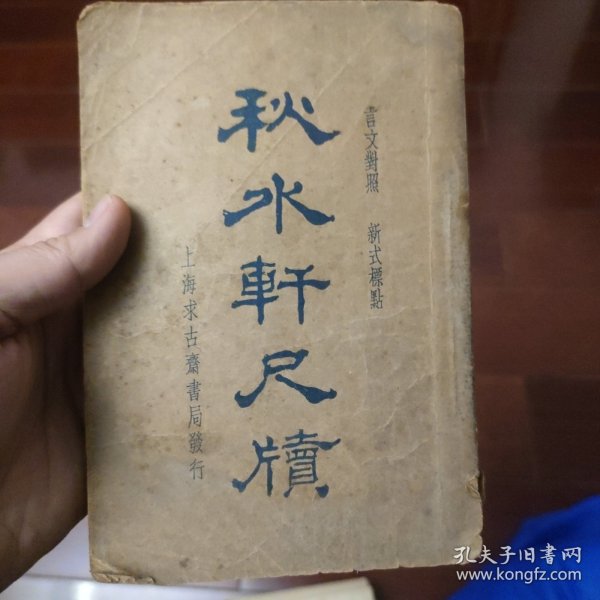 言文對照 新式標點
秋水軒尺牘
上海求古齋書局發行
孔夫子旧书网
www.kongfz.com